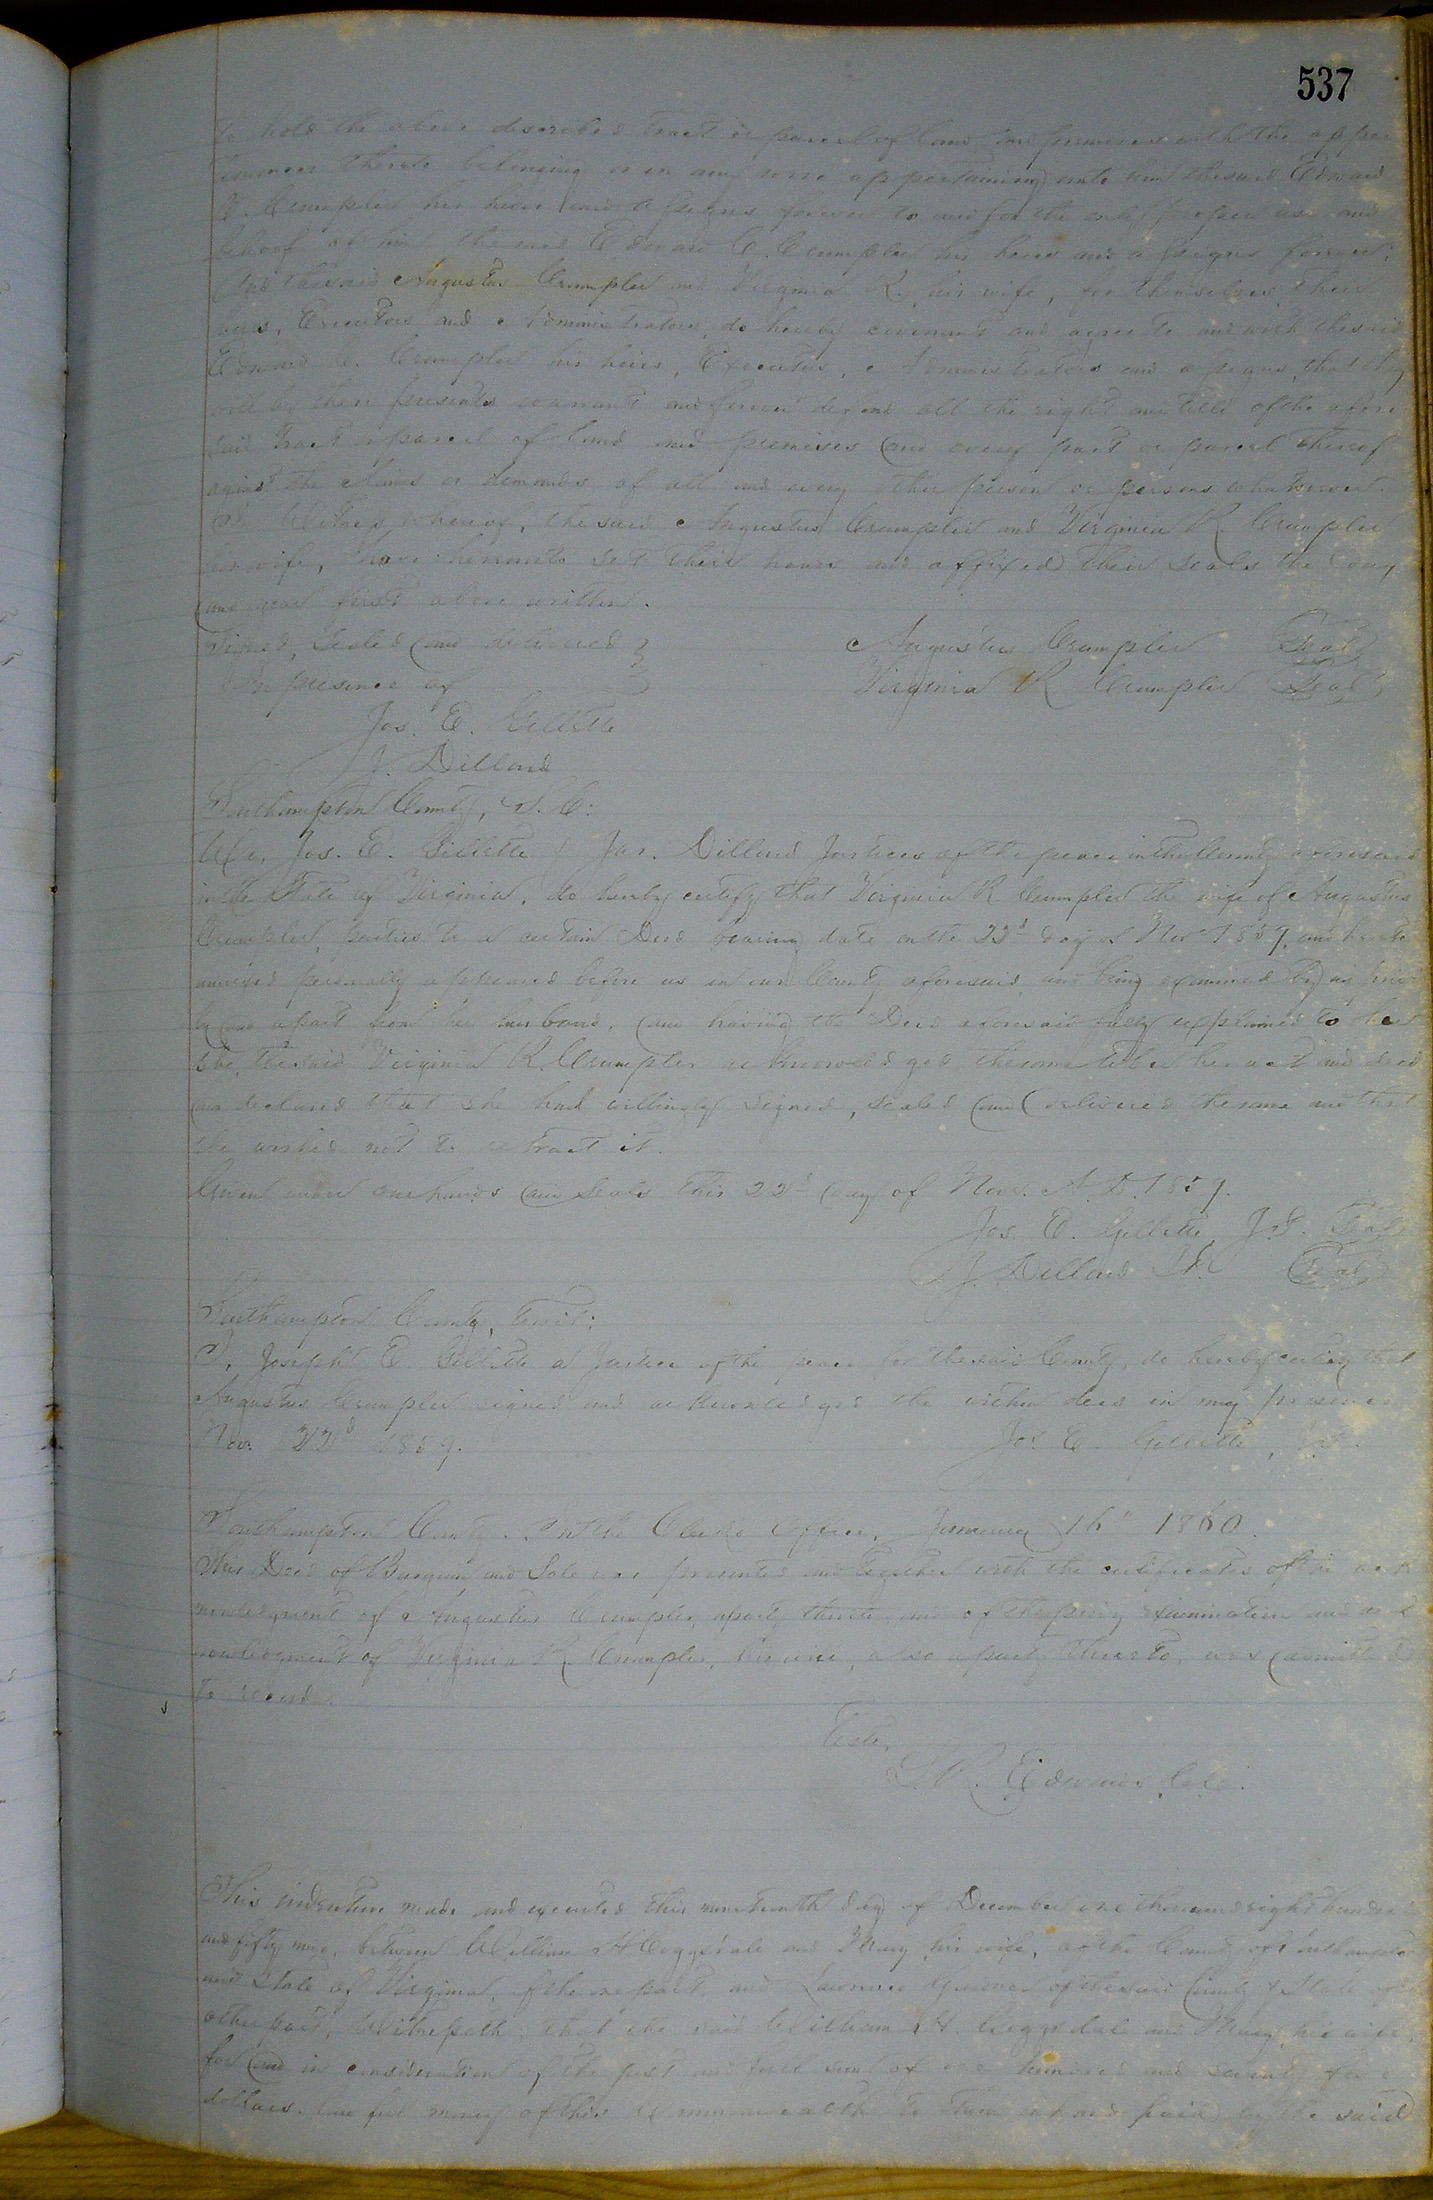 537
to hold the above described tract or parcel of land and premises with the appur
tenances thereto belonging or in any wise appertaining unto him the said Edward
C. Crumpler his heirs and assigns forever to and for the only proper use and
behoof of him the said Edward C. Crumpler his heirs and assigns forever:
And the said Augustus Crumpler and Virginia R. his wife, for themselves, their
heirs, Executors and Administrators, do hereby covenant and agree to and with the said
Edward C. Crumpler his heirs, Executors, Administrators and assigns, that they
will by these presents warrant and forever defend all the right and title of the afore
said tract or parcel of land and premises and every part or parcel thereof
against the claims or demands of all and every other person or persons whatsoever.
In Witness whereof, the said Augustus Crumpler and Virginia R Crumpler
his wife, have hereunto set their hands and affixed their seals the day
and year first above written.
Signed, Sealed and delivered
in presence of
Augustus Crumpler Seal
Virginia R Crumpler Seal
Jos. E. Gillette
J. Dillard
Southampton County, S. C:
We, Jos. E. Gillette & Jas. Dillard Justices of the peace in the County aforesaid
in the State of Virginia, do hereby certify that Virginia R Crumpler the wife of Augustus
Crumpler, parties to a certain Deed bearing date on the 22d day of Nov 1859, and hereto
annexed personally appeared before us in our County aforesaid, and being examined by us priv
ly and apart from her husband, and having the Deed aforesaid fully explained to her
she the said Virginia R. Crumpler acknowledged the same to be her act and deed
and declared that she had willingly signed, sealed and delivered the same and that
she wished not to retract it.
Given under our hands and seals this 22d day of Nov. A. D. 1859.
Jos. E. Gillette J.P. Seal
J. Dillard J.P. Seal
Southampton County, to wit:
I, Joseph E. Gillette a Justice of the peace for the said County, do hereby certify that
Augustus Crumpler signed and acknowledged the within deed in my presence
Nov. 22d 1859.
Jos E. Gillette,
Southampton County. In the Clerks Office, January 16th 1860.
This Deed of Bargain and Sale was presented and together with the certificates of the ack
nowledgment of Augustus Crumpler, a party thereto, and of the privy examination and ack
nowledgment of Virginia R. Crumpler, his wife, also a party thereto, was admitted
to record.
Teste,
L. R. Edwards, Clk.
This indenture made and executed this nineteenth day of December one thousand eight hundred
and fifty nine, between William H Coggsdale and Mary his wife, of the County of Southampton
and State of Virginia, of the one part, and Lawrence of the said County & State of
other part, Witnesseth, that the said William H. Coggsdale and Mary his wife,
for and in consideration of the just and full sum of one hundred and seventy five
dollars, lawful money of this Commonwealth to them in hand paid by the said